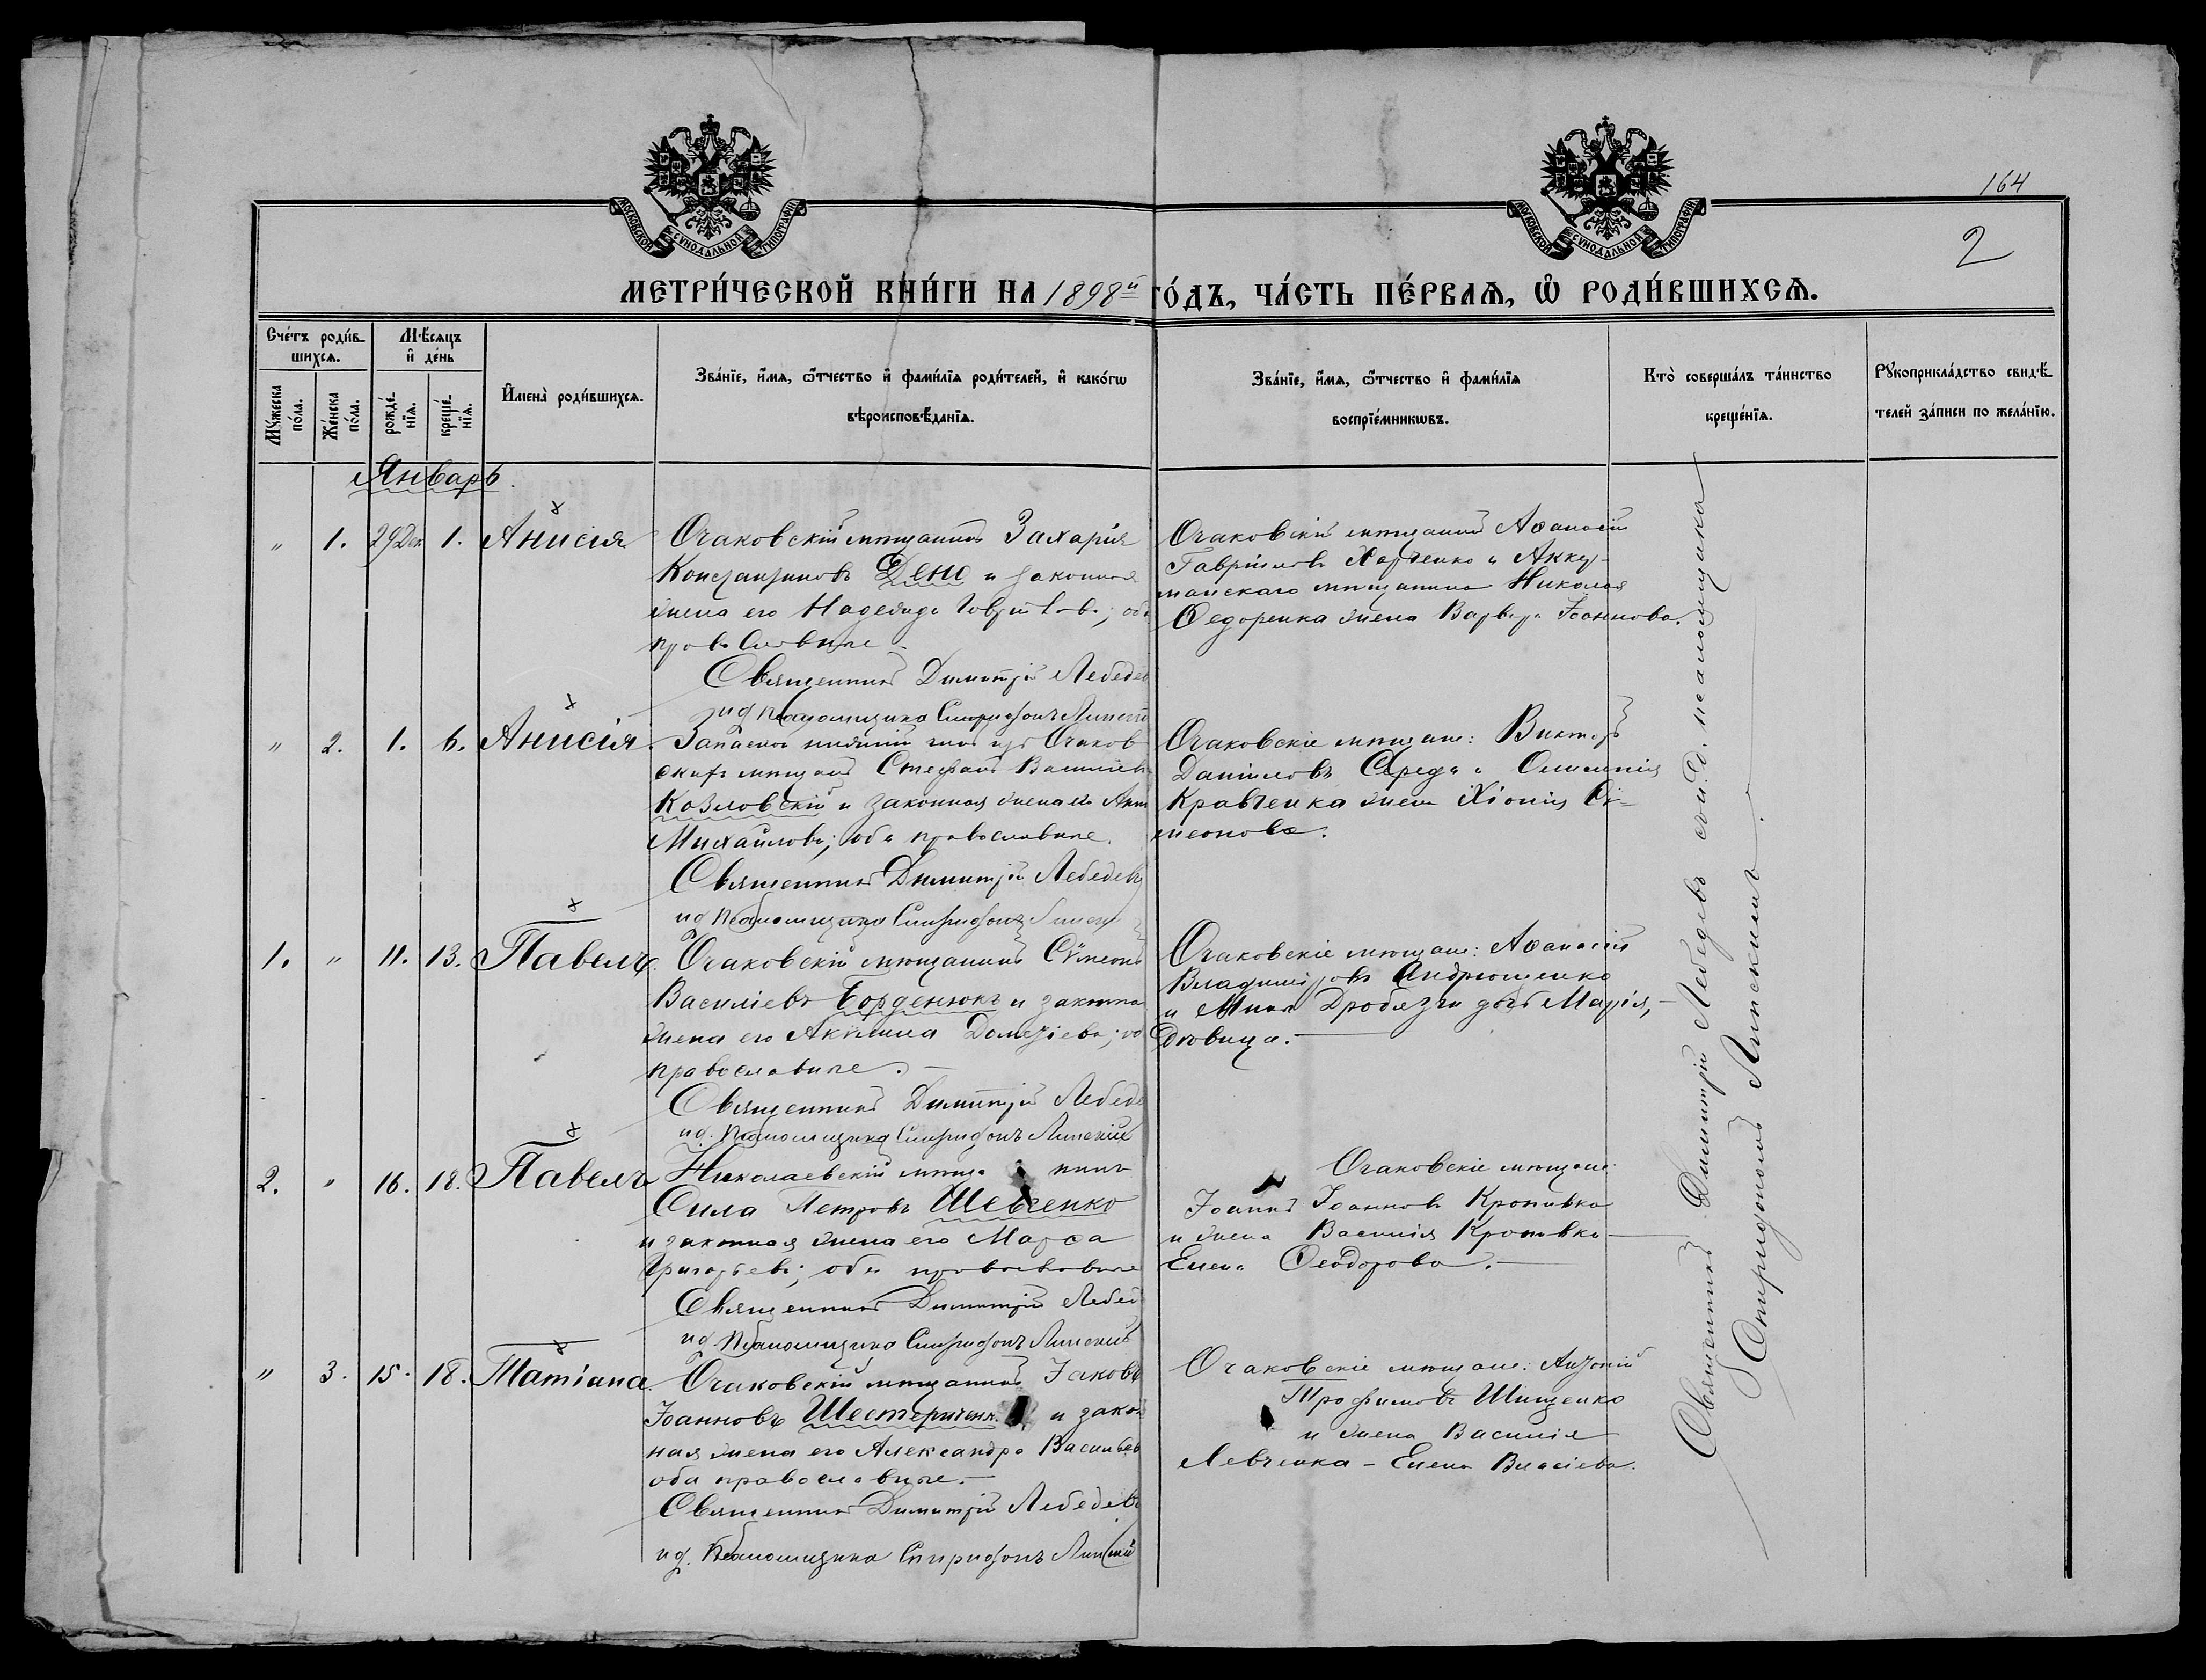 164
2
МОСКОВСКОЙ СУНОДАЛЬНОЙ ТИПОГРАФІИ
МОСКОВСКОЙ СУНОДАЛЬНОЙ ТИПОГРАФІИ
МЕТРИ́ЧЕСКОЙ КНИ́ГИ НА 1898й ГО́ДЪ, ЧА́СТЬ ПЕ́РВАѦ, Ѡ҆ РОДИ́ВШИХСѦ.
Сче́тъ роди́в-
шихсѧ.
Мꙋ́жеска по́ла.
Же́нска по́ла.
Мѣ́сѧцъ
и҆ де́нь
рожде́-
нїѧ.
креще́-
нїѧ.
И҆мена̀ роди́вшихсѧ.
Зва́нїе, и҆́мѧ, ѻ҆́тчество и҆ фами́лїѧ роди́телей, и҆ како́гѡ
вѣроисповѣ́данїѧ.
Зва́нїе, и҆́мѧ, ѻ҆́тчество и҆ фами́лїѧ
воспрїе́мникѡвъ.
Кто̀ соверша́лъ та́инство
креще́нїѧ.
Рꙋкоприкла́дство свидѣ́-
телей за́писи по жела́нїю.
Январь
" 1. 29 Дек. 1. Анисія
Очаковскій мѣщанинъ Захарія
Константиновъ Дене и законная
жена его Надежда; оба
православные
Священникъ Димитрій Лебедев
и д псаломщика Спиридонъ Липскій
Очаковскій мѣщанинъ Аѳанасій
Гавріиловъ Харченко и Аккер-
манскаго мѣщанина Николая
Ѳедоренка жена Варвара Іоаннова.
" 2. 1. 6. Анисія
Запасной нижній чинъ изъ Очаков
скихъ мѣщанъ Стефанъ Василіевъ
Козловскій и законная жена его
Михайлова; оба православные.
Священникъ Димитрій Лебедевъ
и д псаломщика Спиридонъ Липскій
Очаковскіе мѣщане: Викторъ
Даніиловъ Середа и
Кравченка жена Хіонія Си-
меонова.
1. " 11. 13. Павелъ
Очаковскій мѣщанинъ Сѵмеонъ
Василіевъ Борденюкъ и законна
жена его Акилина Дометіева; об
православные.
Священникъ Димитрій Лебеде
и д. псаломщика Спиридонъ Липскій
Очаковскіе мѣщане: Аѳанасій
Владиміровъ Андрющенко
и Дробязги дочь Марія,
дѣвица.
2. " 16. 18. Павелъ
Николаевскій мѣща нинъ
Сила Петровъ Шевченко
и законная жена его Марѳа
Григорьева; оба православные
Священникъ Димитрій Лебед
и д псаломщика Спиридонъ Липскій
Очаковскіе мѣщане
Іоаннъ Іоанновъ Кропивка
и жена Василія Кропивки
Елена Ѳеодорова.
" 3. 15. 18. Татіана
Очаковскій мѣщанинъ Іаковъ
Іоанновъ Шестеричен и закон
ная жена его Александра Васильев
оба православные.
Священникъ Димитрій Лебедевъ
и д. псаломщика Спиридонъ Липскій
Очаковскіе мѣщане: Антоній
Трофимовъ Шищенко
и жена Василія
Левченка - Елена Власіева.
Священникъ Димитрій Лебедевъ съ и. д. псаломщика
Спиридономъ Липскимъ.